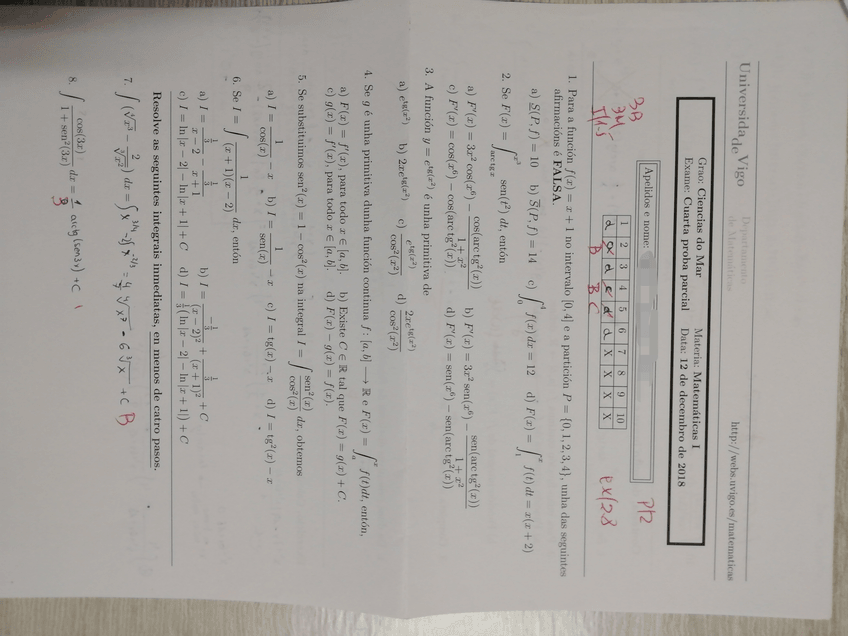 Universida de Vigo
Departamento de Matemáticas
http://webs.uvigo.es/matematicas
Grao: Ciencias do Mar Materia: Matemáticas I
Exame: Cuarta proba parcial Data: 12 de decembro de 2018
Apelidos e nome:
P/2
3B
3M
1 2 3 4 5 6 7 8 9 10
X X X X
B B C
1. Para a función f(x) = x + 1 no intervalo [0, 4] e a partición P = {0, 1, 2, 3, 4}, unha das seguintes
afirmacións é FALSA.
a) S(P, f) = 10 b) S̄(P, f) = 14 c) ∫₀⁴ f(x) dx = 12 d) F(x) = ∫₁ˣ f(t) dt = x(x + 2)
2. Se F(x) = ∫_{arc tg x}^{x³} sen(t²) dt, entón
a) F'(x) = 3x² cos(x⁶) − cos(arc tg²(x))/(1 + x²) b) F'(x) = 3x² sen(x⁶) − sen(arc tg²(x))/(1 + x²)
c) F'(x) = cos(x⁶) − cos(arc tg²(x)) d) F'(x) = sen(x⁶) − sen(arc tg²(x))
3. A función y = e^{tg(x²)} é unha primitiva de
a) e^{tg(x²)} b) 2xe^{tg(x²)} c) e^{tg(x²)}/cos²(x²) d) 2xe^{tg(x²)}/cos²(x²)
4. Se g é unha primitiva dunha función continua f : [a, b] ⟶ ℝ e F(x) = ∫ₐˣ f(t)dt, entón,
a) F(x) = f'(x), para todo x ∈ [a, b]. b) Existe C ∈ ℝ tal que F(x) = g(x) + C.
c) g(x) = f'(x), para todo x ∈ [a, b]. d) F(x) − g(x) = f(x).
5. Se substituimos sen²(x) = 1 − cos²(x) na integral I = ∫ sen²(x)/cos²(x) dx, obtemos
a) I = 1/cos(x) − x b) I = 1/sen(x) − x c) I = tg(x) − x d) I = tg²(x) − x
6. Se I = ∫ 1/((x + 1)(x − 2)) dx, entón
a) I = (1/3)/(x − 2) − (1/3)/(x + 1) b) I = (−1/3)/(x − 2)² + (1/3)/(x + 1)² + C
c) I = ln |x − 2| − ln |x + 1| + C d) I = 1/3 (ln |x − 2| − ln |x + 1|) + C
Resolve as seguintes integrais inmediatas, en menos de catro pasos.
7. ∫ (⁴√x³ − 2/∛x²) dx = ∫ x^{3/4} − 2∫ x^{−2/3} = 4/7 ⁴√x⁷ − 6 ∛x + C B
8. ∫ cos(3x)/(1 + sen²(3x)) dx = 1/3 arctg(sen3x) + C